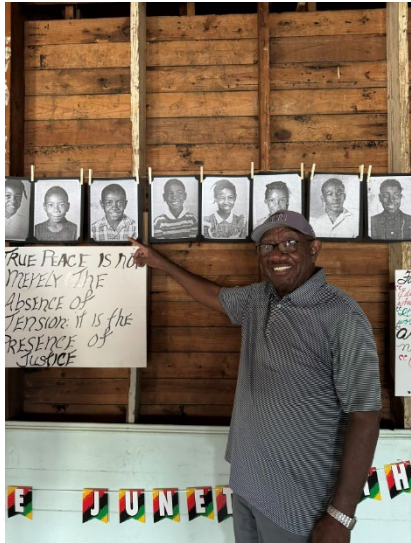 TRUE PEACE IS not
MERELY THE
Absence of
TENSION: it is the
PRESENCE of
JUSTICE
E JUNET H